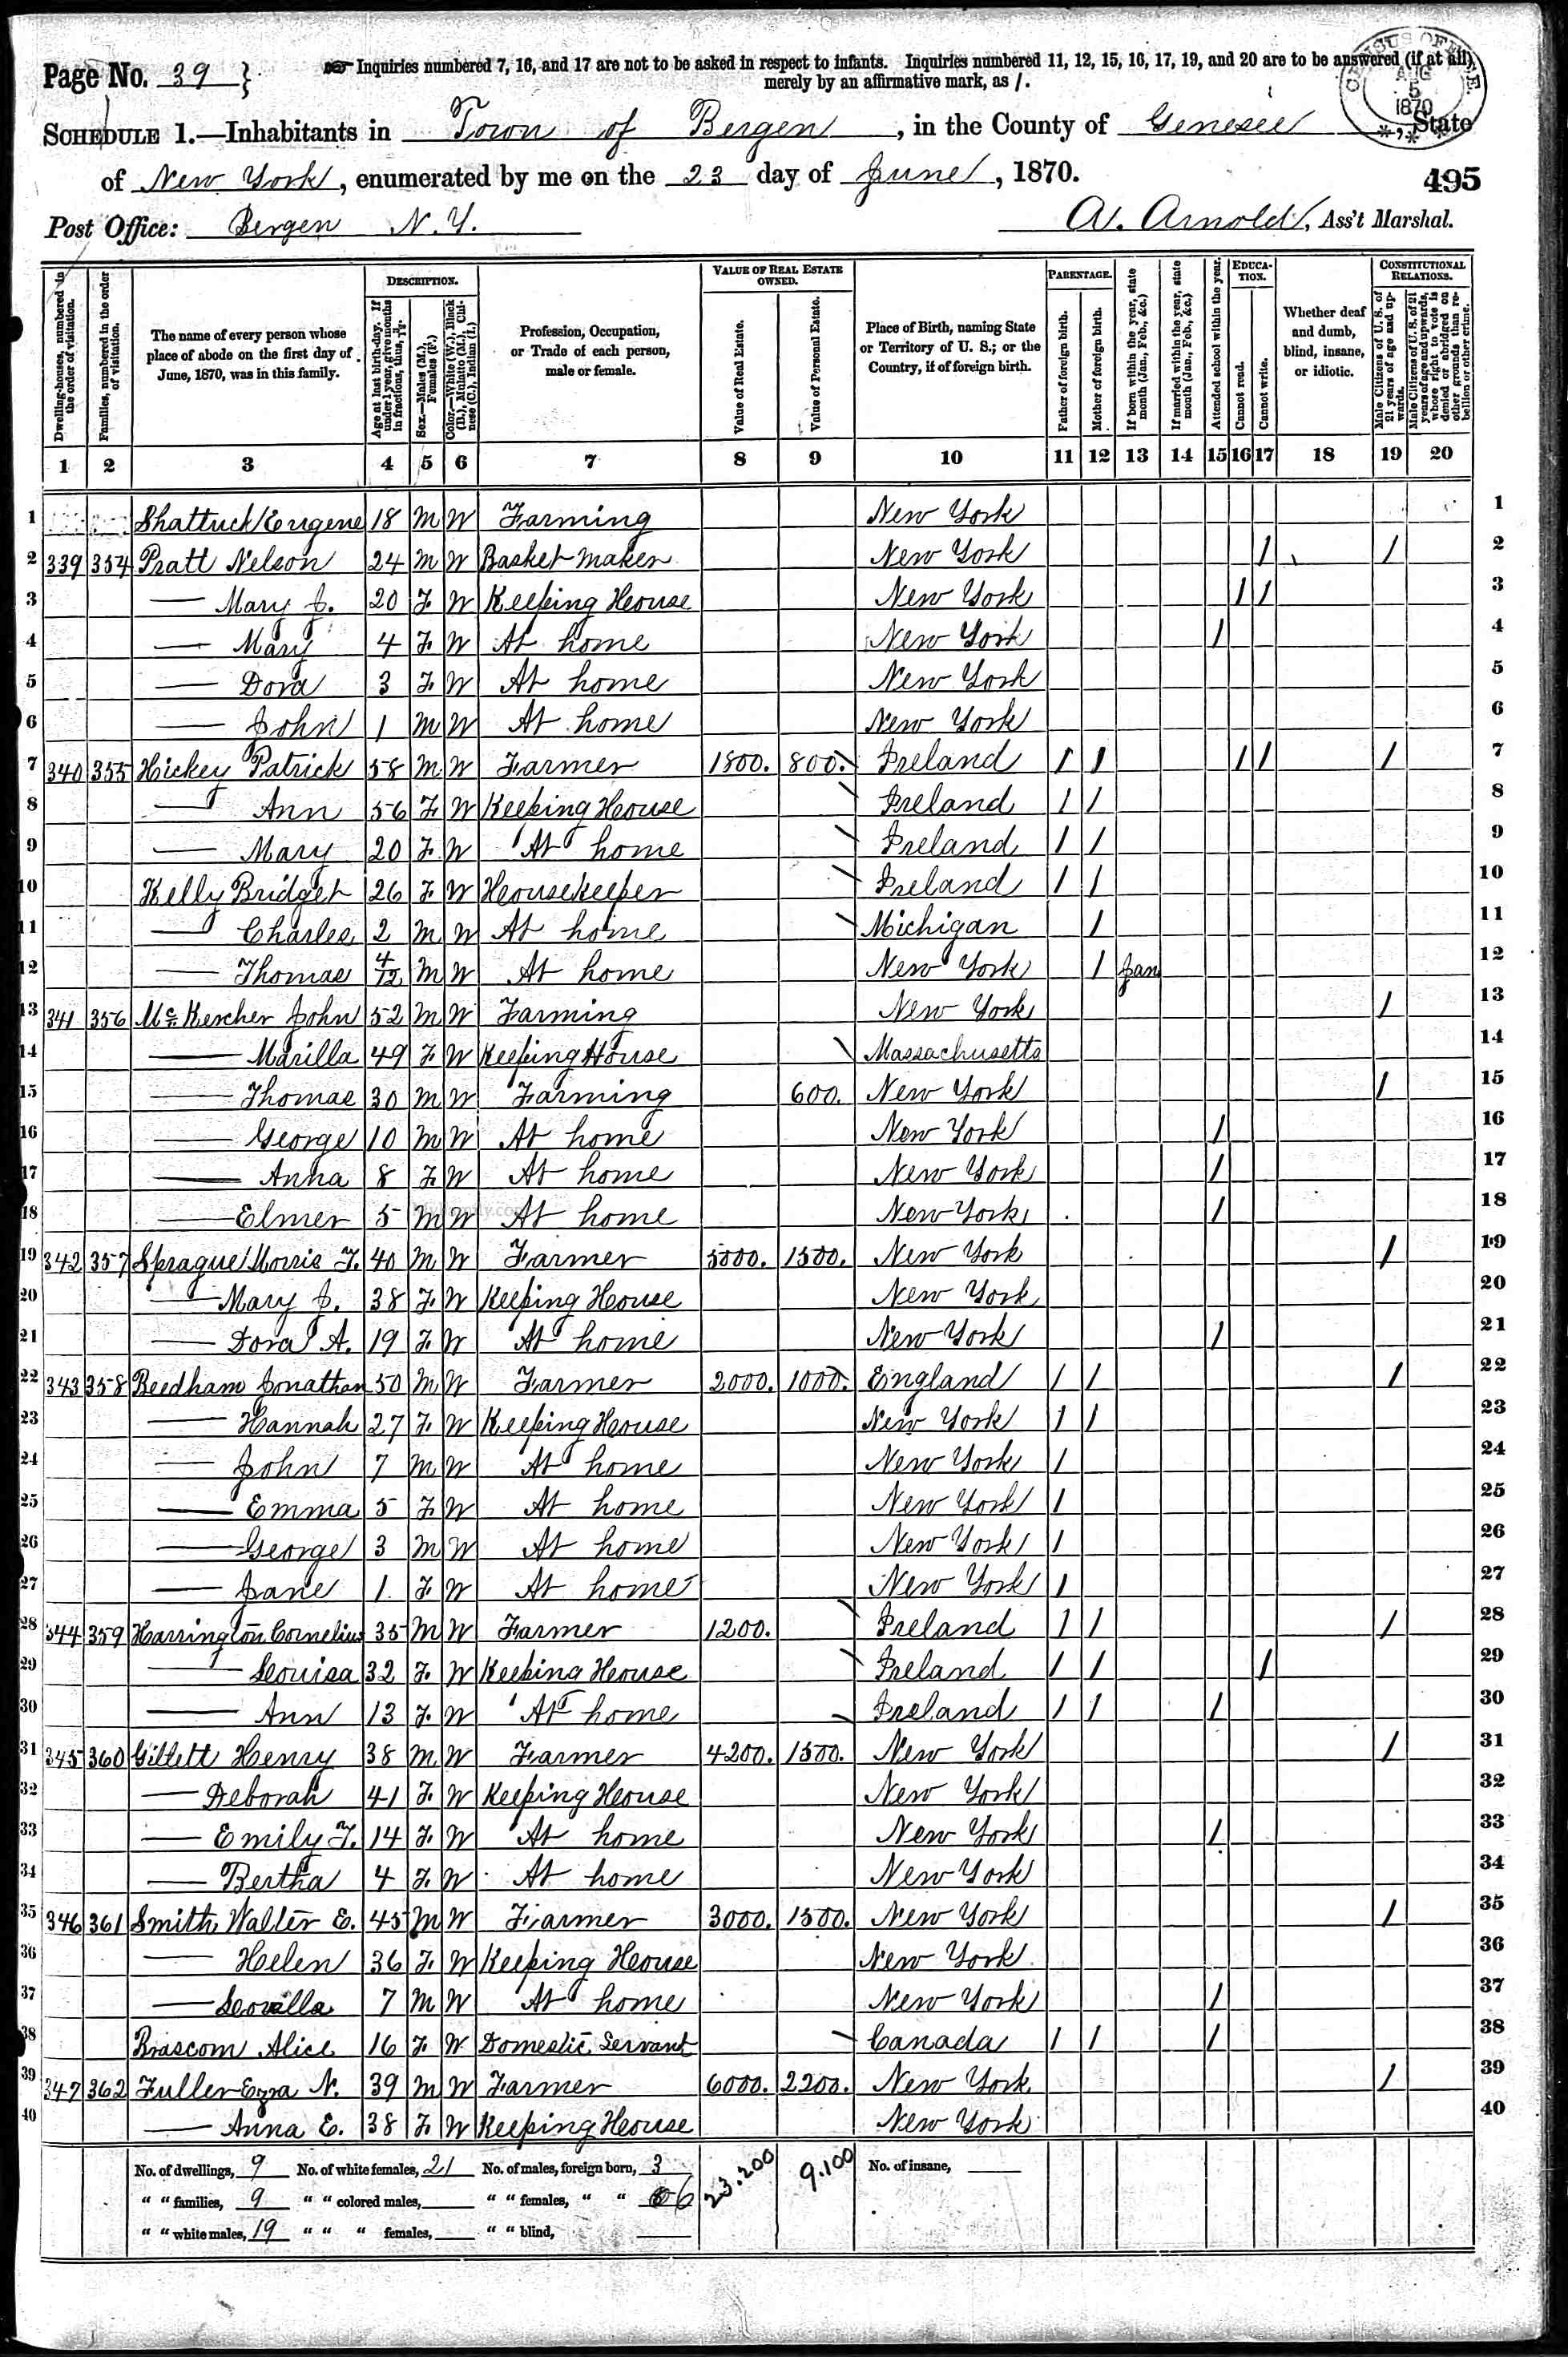 Page No. 39 }
Inquiries numbered 7, 16, and 17 are not to be asked in respect to infants. Inquiries numbered 11, 12, 15, 16, 17, 19, and 20 are to be answered (if at all)
merely by an affirmative mark, as /.
CENSUS OFFICE. AUG 5 1870
SCHEDULE 1.—Inhabitants in Town of Bergen, in the County of Genesee State
of New York, enumerated by me on the 23 day of June, 1870.
495
Post Office: Bergen N.Y.
A. Arnold, Ass't Marshal.
DESCRIPTION. VALUE OF REAL ESTATE OWNED. PARENTAGE. EDUCATION. CONSTITUTIONAL RELATIONS.
Dwelling-houses, numbered in the order of visitation.
Families, numbered in the order of visitation.
The name of every person whose place of abode on the first day of June, 1870, was in this family.
Age at last birth-day. If under 1 year, give months in fractions, thus, 3/12.
Sex.—Males (M.), Females (F.)
Color.—White (W.), Black (B.), Mulatto (M.), Chinese (C.), Indian (I.)
Profession, Occupation, or Trade of each person, male or female.
Value of Real Estate.
Value of Personal Estate.
Place of Birth, naming State or Territory of U. S.; or the Country, if of foreign birth.
Father of foreign birth.
Mother of foreign birth.
If born within the year, state month (Jan., Feb., &c.)
If married within the year, state month (Jan., Feb., &c.)
Attended school within the year.
Cannot read.
Cannot write.
Whether deaf and dumb, blind, insane, or idiotic.
Male Citizens of U. S. of 21 years of age and upwards.
Male Citizens of U. S. of 21 years of age and upwards, whose right to vote is denied or abridged on other grounds than rebellion or other crime.
1 2 3 4 5 6 7 8 9 10 11 12 13 14 15 16 17 18 19 20
1 Shattuck Eugene 18 M W Farming New York 1
2 339 354 Pratt Nelson 24 M W Basket maker New York / / 2
3 — Mary J. 20 F. W Keeping House New York / / 3
4 — Mary 4 F. W At home New York / 4
5 — Dora 3 F. W At home New York 5
6 — John 1 M W At home New York 6
7 340 355 Hickey Patrick 58 M W Farmer 1800. 800. Ireland / / / / / 7
8 — Ann 56 F. W Keeping House Ireland / / 8
9 — Mary 20 F. W At home Ireland / / 9
10 Kelly Bridget 26 F. W Housekeeper Ireland / / 10
11 — Charles 2 M W At home Michigan / 11
12 — Thomas 4/12 M W At home New York / Jan 12
13 341 356 McKercher John 52 M W Farming New York / 13
14 — Marilla 49 F W Keeping House Massachusetts 14
15 — Thomas 30 M W Farming 600. New York / 15
16 — George 10 M W At home New York / 16
17 — Anna 8 F. W At home New York / 17
18 — Elmer 5 M W At home New York / 18
19 342 357 Sprague Morris F. 40 M W Farmer 5000. 1500. New York / 19
20 — Mary J. 38 F. W Keeping House New York 20
21 — Dora A. 19 F. W At home New York / 21
22 343 358 Beedham Jonathan 50 M W Farmer 2000. 1000. England / / / 22
23 — Hannah 27 F. W Keeping House New York / / 23
24 — John 7 M W At home New York / 24
25 — Emma 5 F. W At home New York / 25
26 — George 3 M W At home New York / 26
27 — Jane 1 F. W At home New York / 27
28 344 359 Harrington Cornelius 35 M W Farmer 1200. Ireland / / / 28
29 — Louisa 32 F. W Keeping House Ireland / / / 29
30 — Ann 13 F. W At home Ireland / / / 30
31 345 360 Gillett Henry 38 M W Farmer 4200. 1500. New York / 31
32 — Deborah 41 F. W Keeping House New York 32
33 — Emily F. 14 F. W At home New York / 33
34 — Bertha 4 F. W At home New York 34
35 346 361 Smith Walter E. 45 M W Farmer 3000. 1500. New York / 35
36 — Helen 36 F. W Keeping House New York 36
37 — 7 M W At home New York / 37
38 Brascom Alice 16 F. W Domestic Servant Canada / / / 38
39 347 362 Fuller Ezra N. 39 M W Farmer 6000. 2200. New York / 39
40 — Anna E. 38 F. W Keeping House New York 40
No. of dwellings, 9 No. of white females, 21 No. of males, foreign born, 3 23.200 9.100 No. of insane,
" " families, 9 " " colored males, " " females, " " 6
" " white males, 19 " " " females, " " blind,